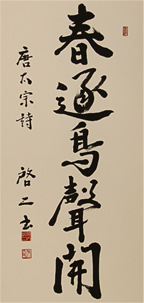 春逐鳥聲開
唐太宗詩
啓二書